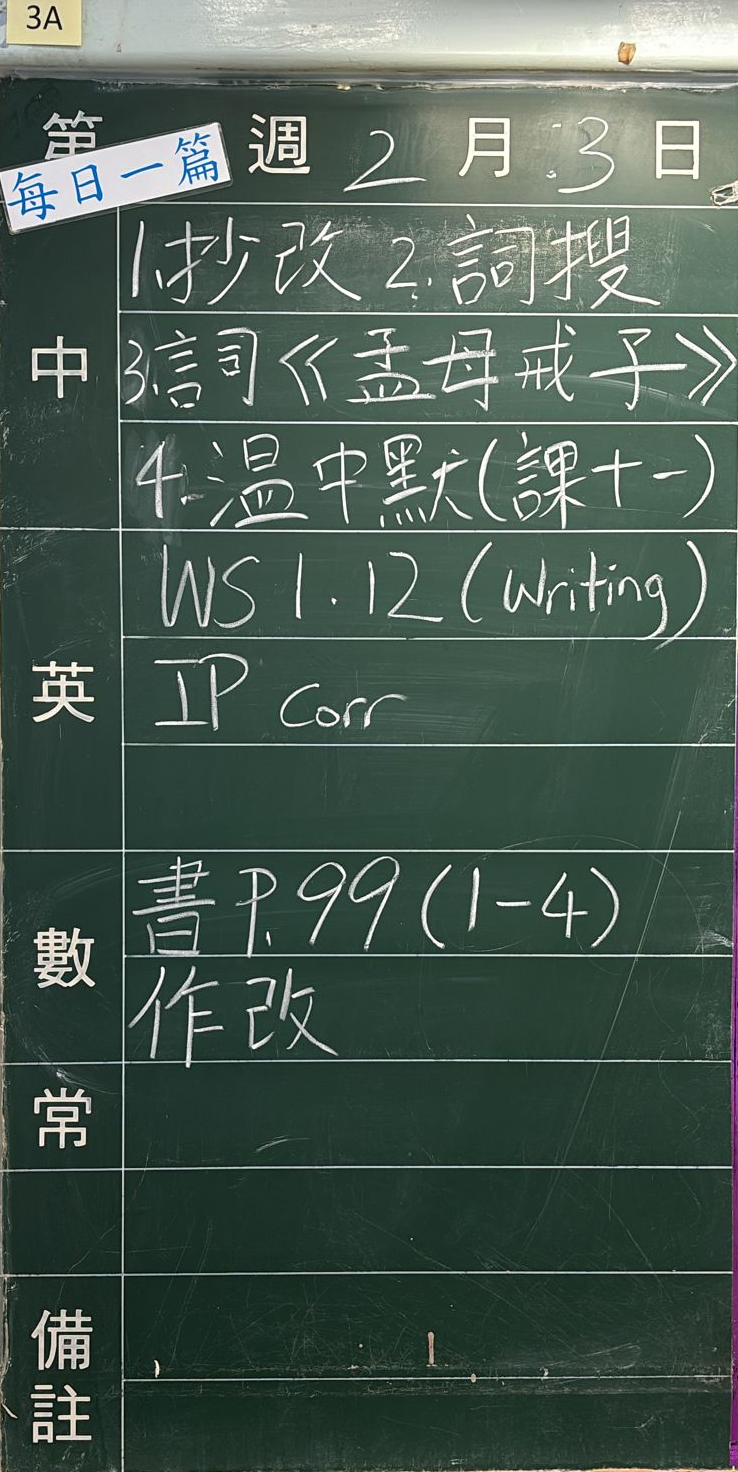 3A
第 週 2 月 3 日
每日一篇
中
1.抄改 2.詞搜
3.詞《孟母戒子》
4.温中默(課十一)
英
WS 1.12 (Writing)
IP Corr
數
書 P.99 (1-4)
作改
常
備註